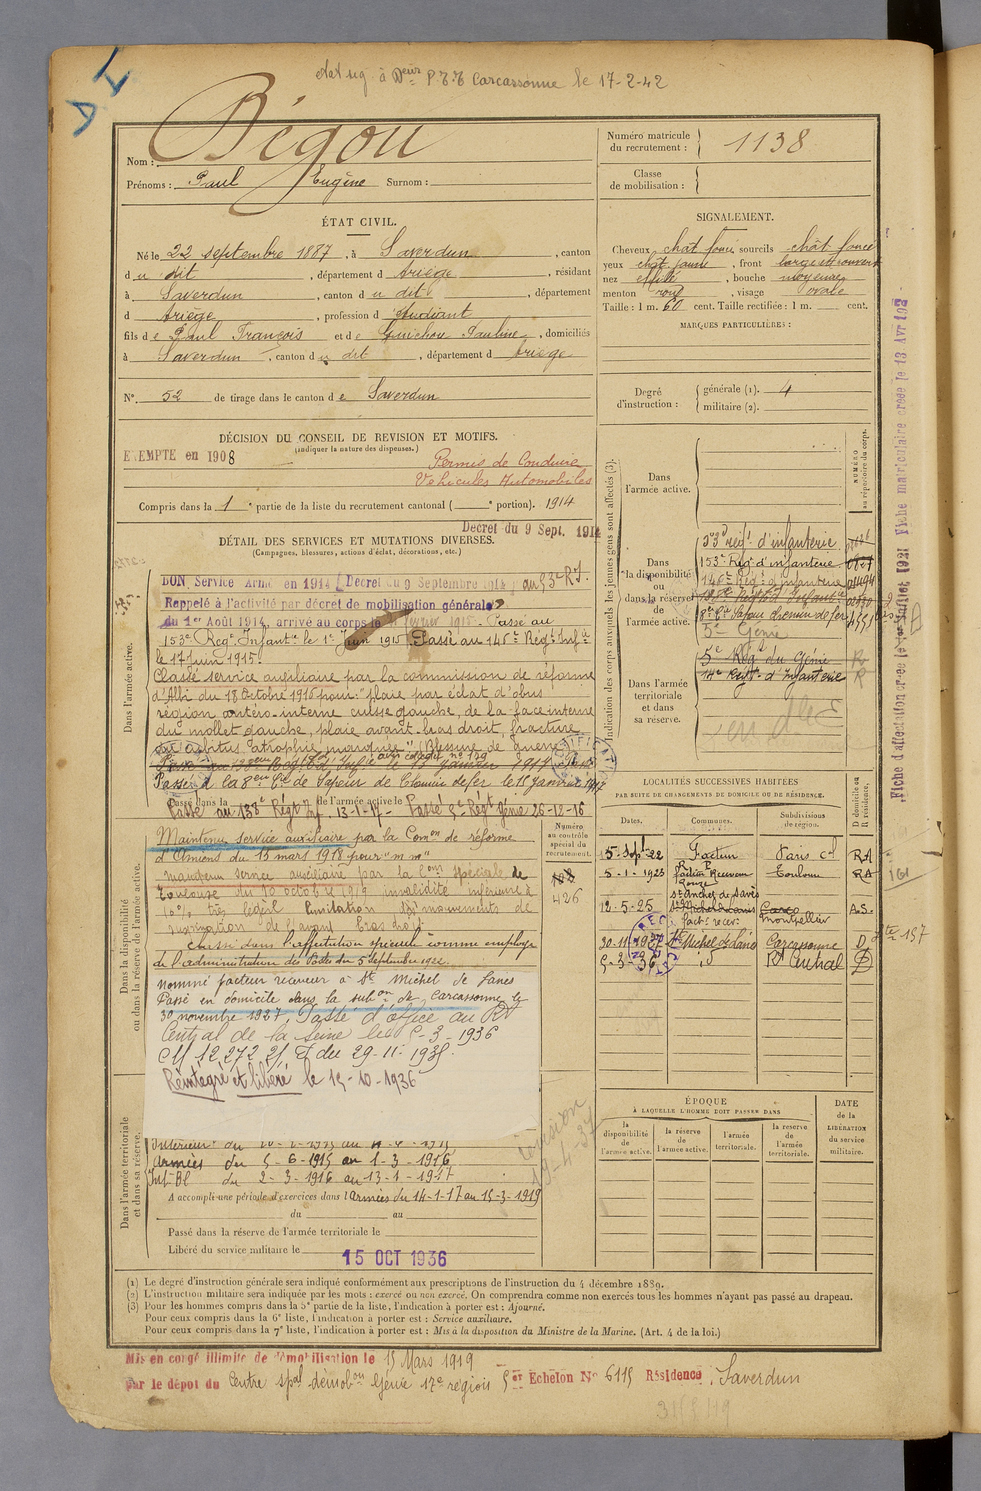 Etat sig à Deur P.T.T. Carcassonne le 17-2-42
Nom : Bégou
Prénoms : Paul Eugène Surnom :
Numéro matricule du recrutement : 1138
Classe de mobilisation :
ÉTAT CIVIL.
Né le 22 septembre 1887, à Saverdun, canton
du dit, département d Ariège, résidant
à Saverdun, canton du dit, département
d Ariège, profession d étudiant
fils de Paul François et de Guichou Pauline, domiciliés
à Saverdun, canton du dit, département d Ariège
N° 52 de tirage dans le canton de Saverdun
SIGNALEMENT.
Cheveux chât foncé sourcils chât foncé
yeux chât jaune, front large et couvert
nez effilé, bouche moyenne
menton rond, visage ovale
Taille : 1 m. 60 cent. Taille rectifiée : 1 m. cent.
MARQUES PARTICULIÈRES :
Degré d'instruction : générale (1). 4
militaire (2).
DÉCISION DU CONSEIL DE REVISION ET MOTIFS.
(Indiquer la nature des dispenses.)
EXEMPTÉ en 1908
Permis de Conduire
Véhicules Automobiles
Compris dans la 1e partie de la liste du recrutement cantonal ( e portion). 1914
Décret du 9 Sept. 1914
DÉTAIL DES SERVICES ET MUTATIONS DIVERSES.
(Campagnes, blessures, actions d'éclat, décorations, etc.)
Dans l'armée active.
BON Service Armé en 1914 (Décret du 9 Septembre 1914) au 53e R.I.
Rappelé à l'activité par décret de mobilisation générale
du 1er Août 1914, arrivé au corps le février 1915. Passé au
153e Régt Infantie le 1er Juin 1915. Passé au 146e Régt Infie
le 17 juin 1915.
Classé service auxiliaire par la commission de réforme
d'Albi du 18 Octobre 1916 pour "plaie par éclat d'obus
région antéro-interne cuisse gauche, de la face interne
du mollet gauche, plaie avant-bras droit, fracture
du cubitus, atrophie marquée" (Blessure de guerre)
Passé à la 8eme Cie de Sapeur de Chemin de fer le 15 janvier 1917
Passé dans la de l'armée active le
Passé au 138e Régt Inf. 13-1-17 - Passé 5e Régt Génie 26-12-16
Dans la disponibilité ou dans la réserve de l'armée active.
Maintenu service auxiliaire par la Comon de réforme
d'Amiens du 15 mars 1918 pour "m m"
maintenu service auxiliaire par la Com spéciale de
Toulouse du 10 octobre 1919 invalidité inférieure à
10% très légère limitation des mouvements de
supination de l'avant bras droit
classé dans l'affectation spéciale comme employé
de l'administration des Postes du 5 septembre 1922
nommé facteur receveur à St Michel de Lanes
Passé en domicile dans la subon de Carcassonne le
30 novembre 1927. Passé d'office au RT
Central de la Seine le 5-3-1936
CM 12.272 du 29-11-1935.
Réintégré et libéré le 15-10-1936
Dans l'armée territoriale et dans sa réserve.
Armées du 5-6-1915 au 1-3-1916
Int. Bl du 2-3-1916 au 13-1-1917
A accompli une période d'exercices dans l Armées du 14-1-17 au 15-3-1919
du au
Passé dans la réserve de l'armée territoriale le
Libéré du service militaire le 15 OCT 1936
Indication des corps auxquels les jeunes gens sont affectés (3).
NUMÉRO au répertoire du corps.
Dans l'armée active.
Dans la disponibilité ou dans la réserve de l'armée active.
53e régt d'infanterie
153e Régt d'infanterie
146e Régt d'infanterie
8e Cie Sapeur chemin de fer
5e Génie
Dans l'armée territoriale et dans sa réserve.
5e Régt du Génie R
14e Régt d'Infanterie R
LOCALITÉS SUCCESSIVES HABITÉES
PAR SUITE DE CHANGEMENTS DE DOMICILE OU DE RÉSIDENCE.
Numéro au contrôle spécial du recrutement.
Dates. Communes. Subdivisions de région. D domicile ou R résidence.
426
5-Sept-22 Facteur Paris cal RA
5-1-1923 Toulouse RA
12-5-25 Montpellier A.S.
30-11-1927 St Michel de Lanes Carcassonne D
5-3-36 id Rt Central D
révision
19-4-37
ÉPOQUE
À LAQUELLE L'HOMME DOIT PASSER DANS
DATE de la LIBÉRATION du service militaire.
la disponibilité de l'armée active.
la réserve de l'armée active.
l'armée territoriale.
la réserve de l'armée territoriale.
(1) Le degré d'instruction générale sera indiqué conformément aux prescriptions de l'instruction du 4 décembre 1889.
(2) L'instruction militaire sera indiquée par les mots : exercé ou non exercé. On comprendra comme non exercés tous les hommes n'ayant pas passé au drapeau.
(3) Pour les hommes compris dans la 5e partie de la liste, l'indication à porter est : Ajourné.
Pour ceux compris dans la 6e liste, l'indication à porter est : Service auxiliaire.
Pour ceux compris dans la 7e liste, l'indication à porter est : Mis à la disposition du Ministre de la Marine. (Art. 4 de la loi.)
Mis en congé illimité de démobilisation le 15 Mars 1919
par le dépôt du Centre spal démobon Génie 17e région 5er Echelon N° 6115 Résidence : Saverdun